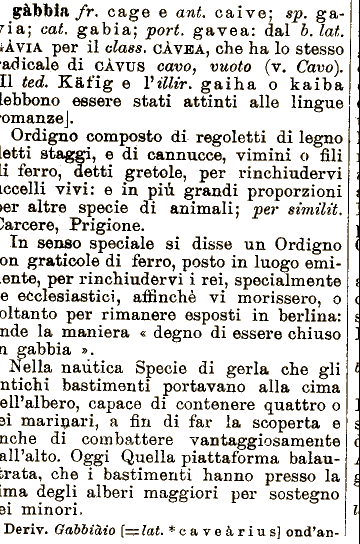 gàbbia fr. cage e ant. caive; sp. ga-
via; cat. gabia; port. gavea: dal b. lat.
GÀVIA per il class. CÀVEA, che ha lo stesso
radicale di CÀVUS cavo, vuoto (v. Cavo).
[Il ted. Käfig e l'illir. gaiha o kaiba
debbono essere stati attinti alle lingue
romanze].
Ordigno composto di regoletti di legno
detti staggi, e di cannucce, vimini o fili
di ferro, detti gretole, per rinchiudervi
uccelli vivi: e in più grandi proporzioni
per altre specie di animali; per similit.
Carcere, Prigione.
In senso speciale si disse un Ordigno
con graticole di ferro, posto in luogo emi-
nente, per rinchiudervi i rei, specialmente
se ecclesiastici, affinchè vi morissero, o
soltanto per rimanere esposti in berlina:
onde la maniera « degno di essere chiuso
in gabbia ».
Nella naútica Specie di gerla che gli
antichi bastimenti portavano alla cima
dell'albero, capace di contenere quattro o
sei marinari, a fin di far la scoperta e
anche di combattere vantaggiosamente
dall'alto. Oggi Quella piattaforma balau-
strata, che i bastimenti hanno presso la
cima degli alberi maggiori per sostegno
dei minori.
Deriv. Gabbiàio [=lat. *caveàrius] ond'an-